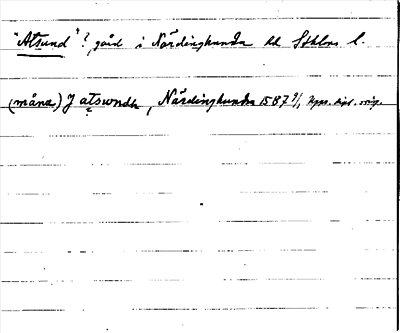 "Atsund"? gård i Närdinghundra hd Sthlms l.
(måna) J atswndh, Närdinghundra 1587 7/1 Upps. dipl. orig.